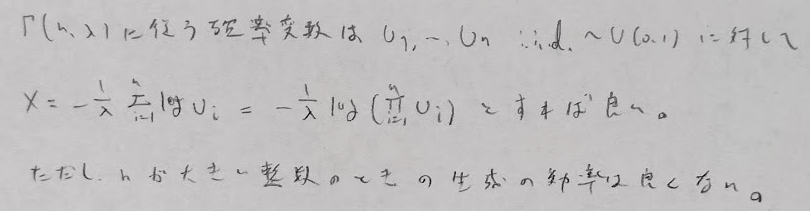 Γ(n, λ) に従う確率変数は U₁, …, Uₙ i.i.d. ~ U(0,1) に対して
X = -1/λ Σ_{i=1}^{n} log Uᵢ = -1/λ log (∏_{i=1}^{n} Uᵢ) とすれば良い。
ただし、nが大きい整数のときの生成の効率は良くない。